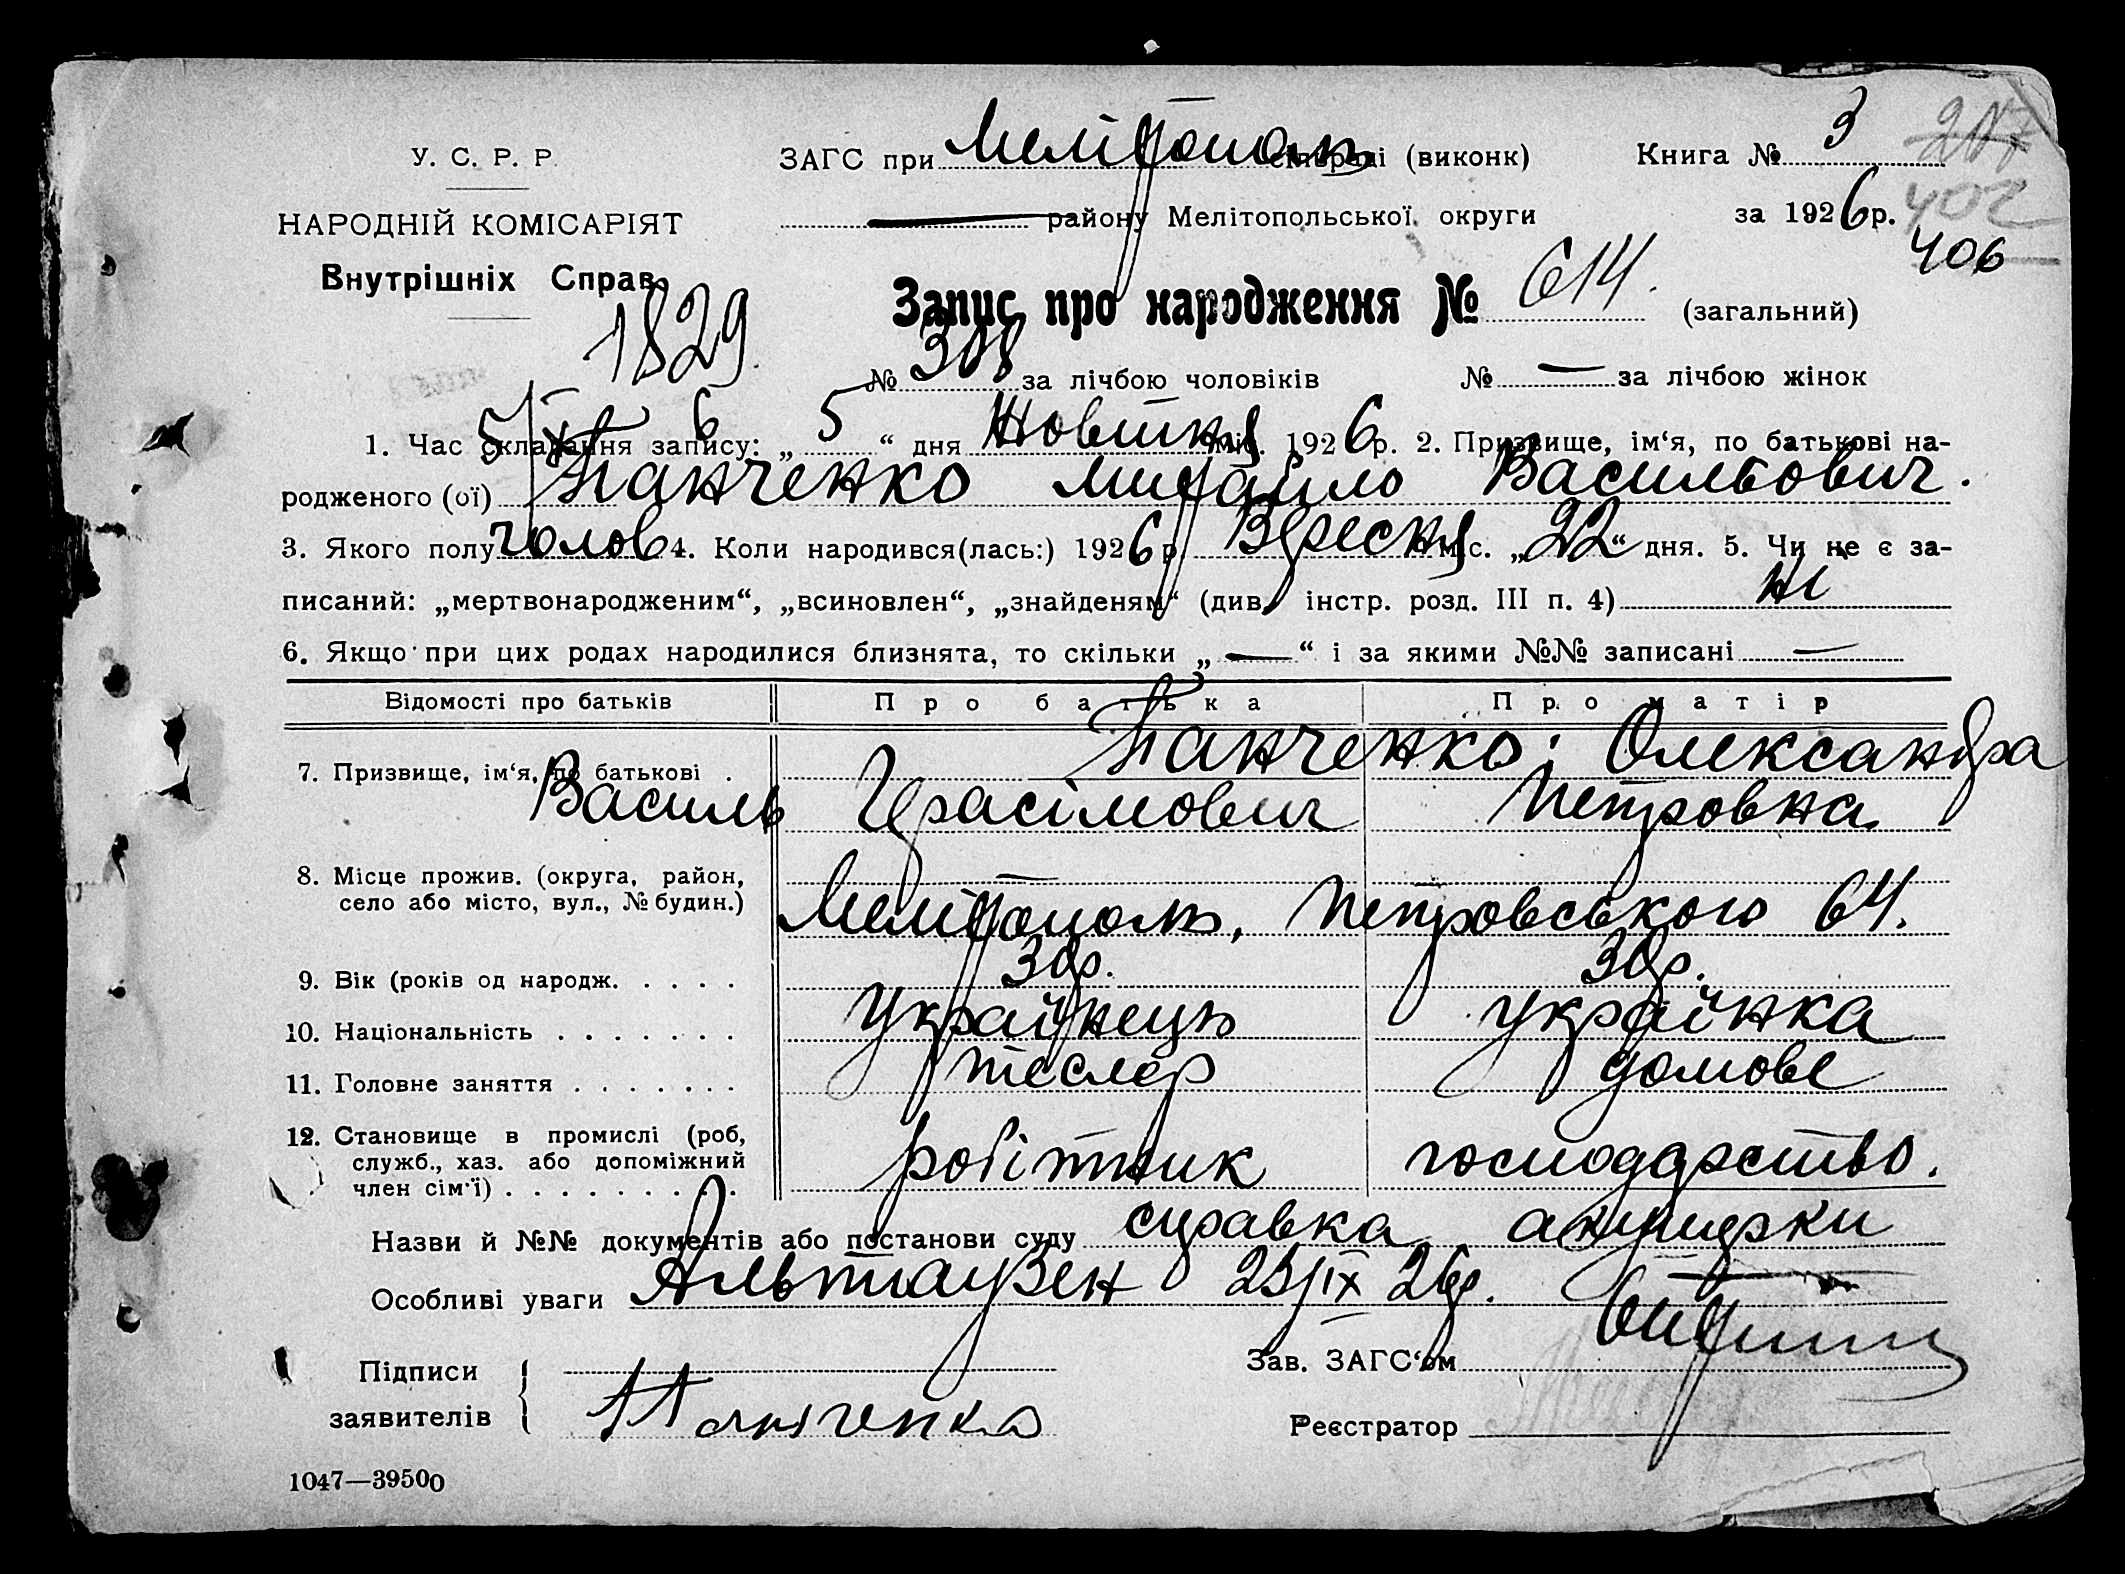 У. С. Р. Р.
НАРОДНІЙ КОМІСАРІЯТ
Внутрішніх Справ
1829
ЗАГС при Мелітополь сільраді (виконк)
району Мелітопольської округи
Книга № 3
за 1926 р.
217
402
406
Запис про народження № 614. (загальний)
№ 308 за лічбою чоловіків № — за лічбою жінок
5/X 6
1. Час складання запису: „ 5 “ дня Жовтня міс. 1926 р. 2. Призвище, ім‘я, по батькові на-
родженого (ої) Панченко Михайло Васильович.
3. Якого полу чолов 4. Коли народився(лась:) 1926 р. Вересня міс. „ 22 “ дня. 5. Чи не є за-
писаний: „мертвонародженим“, „всиновлен“, „знайденям“ (див. інстр. розд. III п. 4) ні
6. Якщо при цих родах народилися близнята, то скільки „ — “ і за якими №№ записані —
Відомості про батьків Про батька Про матір
7. Призвище, ім‘я, по батькові . Панченко: Олександра
Василь Герасімович Петровна
8. Місце прожив. (округа, район,
село або місто, вул., № будин.) Мелітополь, Петровського 64.
9. Вік (років од народж. . . . . 30р. 30р.
10. Національність . . . . . . . українець українка
11. Головне заняття . . . . . . . тесляр домове
12. Становище в промислі (роб,
служб., хаз. або допоміжний
член сім‘ї) . . . . . . . . . робітник господарство.
Назви й №№ документів або постанови суду справка акушерки
Особливі уваги Альтаузен 25/IX 26р.
Підписи
заявителів Панченко
Зав. ЗАГС‘ом
Реєстратор
1047—39500